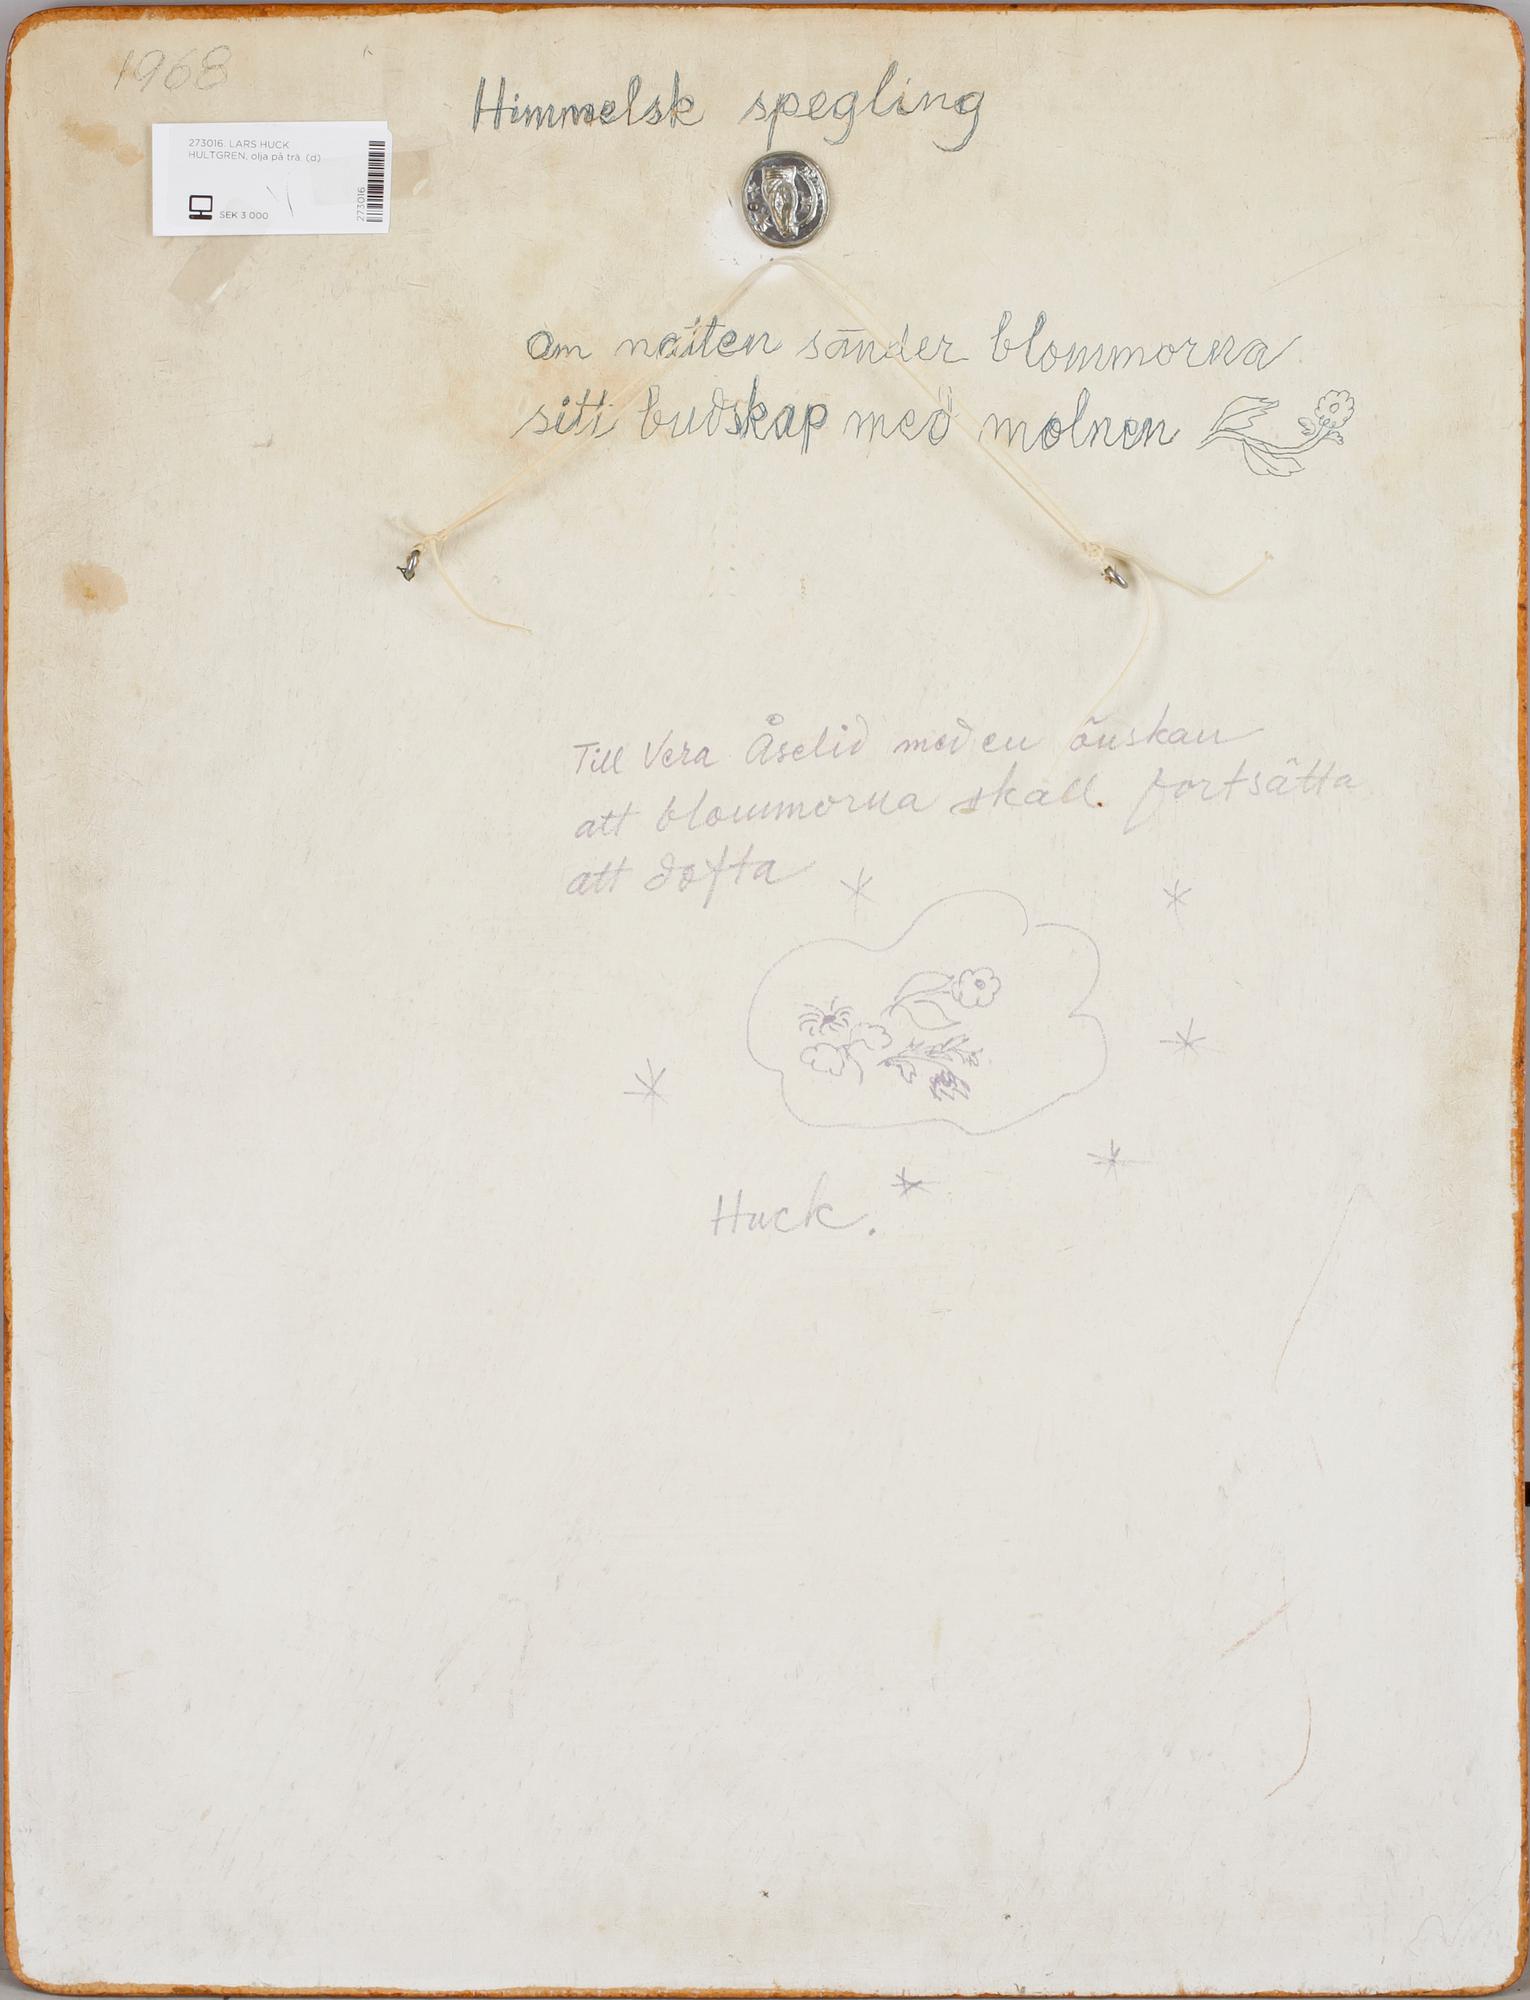 1968
Himmelsk spegling
273016. LARS HUCK
HULTGREN, olja på trä. (d)
SEK 3 000
273016
Om natten sänder blommorna
sitt budskap med molnen
Till Vera Åselid med en önskan
att blommorna skall fortsätta
att dofta
Huck.